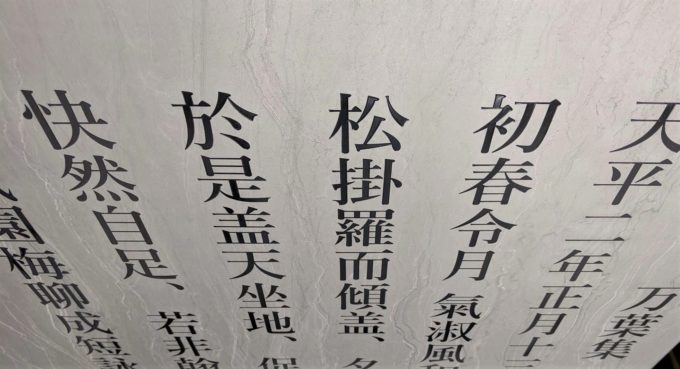 万葉集
天平二年正月十
初春令月 氣淑風
松掛羅而傾盖、
於是盖天坐地、
快然自足、若非翰
園梅聊成短詠